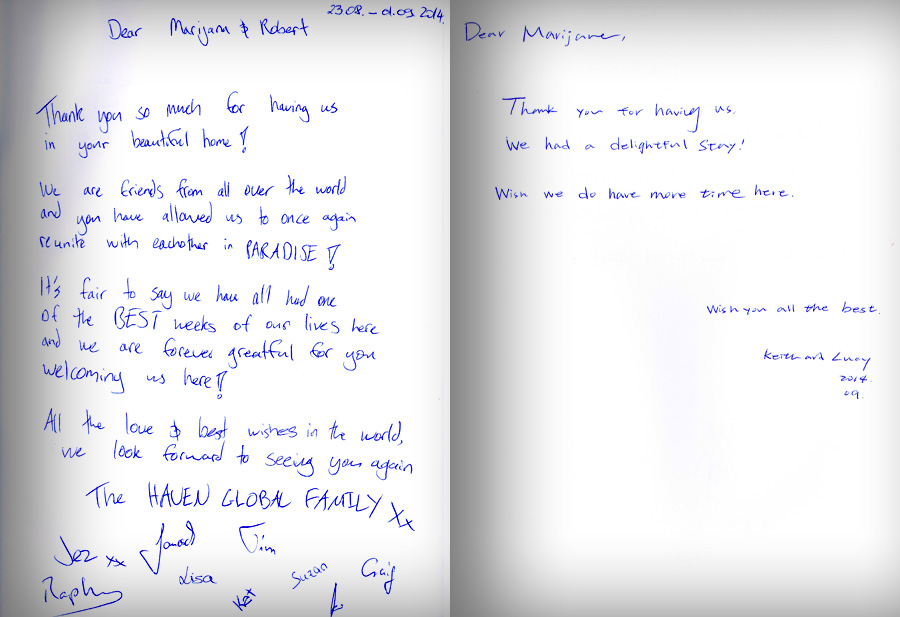 23.08. – 01.09.2014.
Dear Marijana & Robert
Thank you so much for having us
in your beautiful home!
We are friends from all over the world
and you have allowed us to once again
reunite with eachother in PARADISE!
It's fair to say we have all had one
of the BEST weeks of our lives here
and we are forever greatful for you
welcoming us here!
All the love & best wishes in the world,
we look forward to seeing you again
The HAVEN GLOBAL FAMILY xx
Jez xx
Tim
Lisa
Suzan
Craig
Kat
Dear Marijane,
Thank you for having us.
We had a delightful stay!
Wish we do have more time here.
Wish you all the best.
Keith and Lucy
2014.
09.